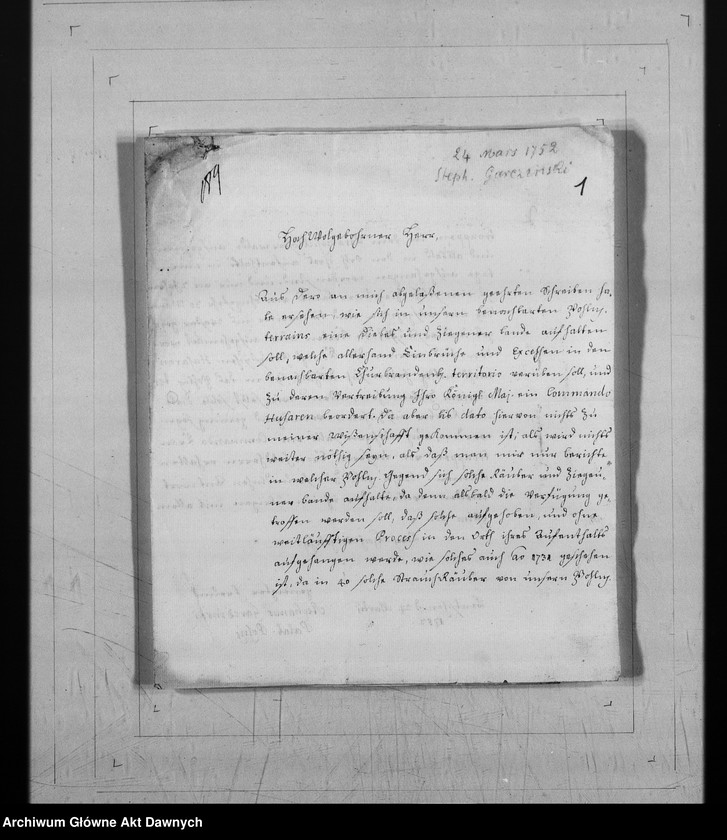 24 Mars 1752
Steph. Garczinski
189
1
HochWolgebohrner Herr,
Aus Dero an mich abgelaßenen geehrten Schreiben ha-
be ersehen, wie sich in unsern benachbarten Pohln.
terrains eine Diebes und Ziegener bande aufhalten
soll, welche allerhand Einbrüche und Excessen in den
benachbarten Churbrandenb. territorio verüben soll, und
zu deren Vertreibung Ihro Königl. Maj. ein Commando
Husaren beordert. Da aber bis dato hiervon nichts zu
meiner Wißenschafft gekommen ist; als wird nichts
weiter nöthig seyn, als daß man mir nur berichte
in welcher Pohln. Gegend sich solche Räuber und Ziegeu-
ner bande aufhalte, da denn alsbald die Verfügung ge-
troffen werden soll, daß solche aufgehoben, und ohne
weitläufftigen Process in den Orth ihres Aufenthalts
aufgehangen werde, wie solches auch Ao 1731 geschehen
ist, da in 40 solche Strauch Räuber von unsern Pohln.
Archiwum Główne Akt Dawnych